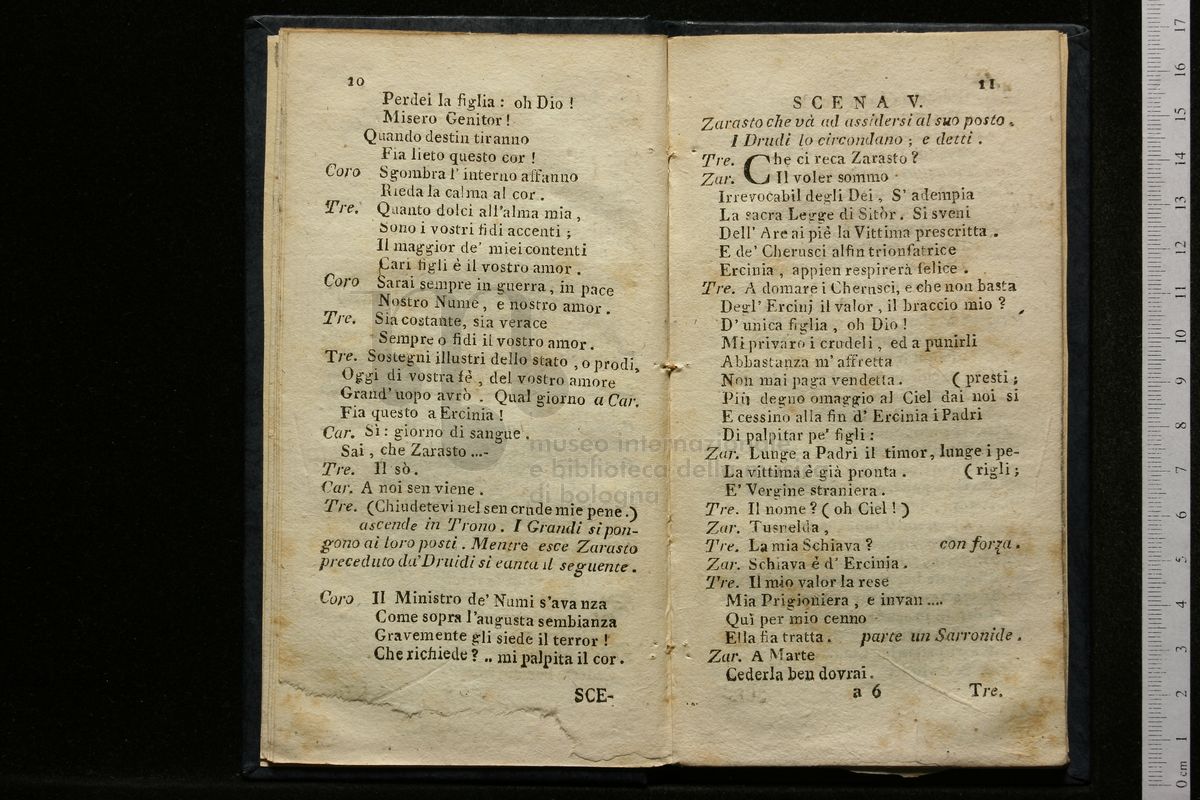 10
Perdei la figlia : oh Dio !
Misero Genitor !
Quando destin tiranno
Fia lieto questo cor !
Coro Sgombra l' interno affanno
Rieda la calma al cor .
Tre. Quanto dolci all'alma mia ,
Sono i vostri fidi accenti ;
Il maggior de' miei contenti
Cari figli è il vostro amor .
Coro Sarai sempre in guerra , in pace
Nostro Nume , e nostro amor .
Tre. Sia costante, sia verace
Sempre o fidi il vostro amor .
Tre. Sostegni illustri dello stato , o prodi,
Oggi di vostra fè , del vostro amore
Grand' uopo avrò . Qual giorno a Car.
Fia questo a Ercinia !
Car. Sì : giorno di sangue .
Sai , che Zarasto ...-
Tre. Il sò.
Car. A noi sen viene .
Tre. (Chiudetevi nel sen crude mie pene .)
ascende in Trono . I Grandi si pon-
gono ai loro posti . Mentre esce Zarasto
preceduto da' Druidi si canta il seguente .
Coro Il Ministro de' Numi s'ava nza
Come sopra l'augusta sembianza
Gravemente gli siede il terror !
Che richiede ? .. mi palpita il cor .
SCE-
11
SCENA V.
Zarasto che và ad assidersi al suo posto .
I Drudi lo circondano ; e detti .
Tre. Che ci reca Zarasto ?
Zar. Il voler sommo
Irrevocabil degli Dei , S' adempia
La sacra Legge di Sitòr . Si sveni
Dell' Are ai piè la Vittima prescritta .
E de' Cherusci alfin trionfatrice
Ercinia , appien respirerà felice .
Tre. A domare i Cherusci, e che non basta
Degl' Ercinj il valor , il braccio mio ?
D' unica figlia , oh Dio !
Mi privaro i crudeli , ed a punirli
Abbastanza m' affretta
Non mai paga vendetta . ( presti ;
Più degno omaggio al Ciel dai noi si
E cessino alla fin d' Ercinia i Padri
Di palpitar pe' figli :
Zar. Lunge a Padri il timor, lunge i pe-
La vittima è già pronta . ( rigli ;
E' Vergine straniera .
Tre. Il nome ? ( oh Ciel ! )
Zar. Tusnelda ,
Tre. La mia Schiava ? con forza .
Zar. Schiava è d' Ercinia .
Tre. Il mio valor la rese
Mia Prigioniera , e invan ....
Quì per mio cenno
Ella fia tratta . parte un Sarronide .
Zar. A Marte
Cederla ben dovrai .
a 6 Tre.
museo internazionale
e biblioteca della
di bologna
0 cm 1 2 3 4 5 6 7 8 9 10 11 12 13 14 15 16 17